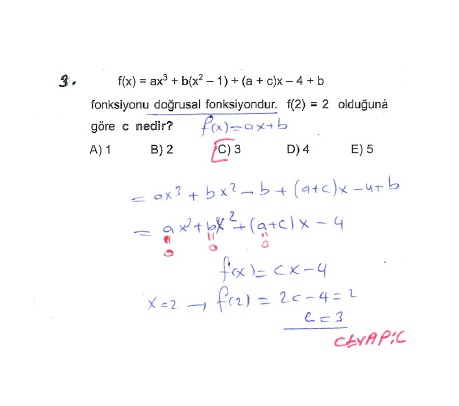 3. f(x) = ax³ + b(x² – 1) + (a + c)x – 4 + b
fonksiyonu doğrusal fonksiyondur. f(2) = 2 olduğuna
göre c nedir? f(x)=ax+b
A) 1 B) 2 C) 3 D) 4 E) 5
= ax³ + bx² - b + (a+c)x - 4+b
= ax³+bx²+(a+c)x - 4
= = =
0 0 0
f(x) = cx-4
x=2 → f(2) = 2c-4=2
c=3
CEVAP:C